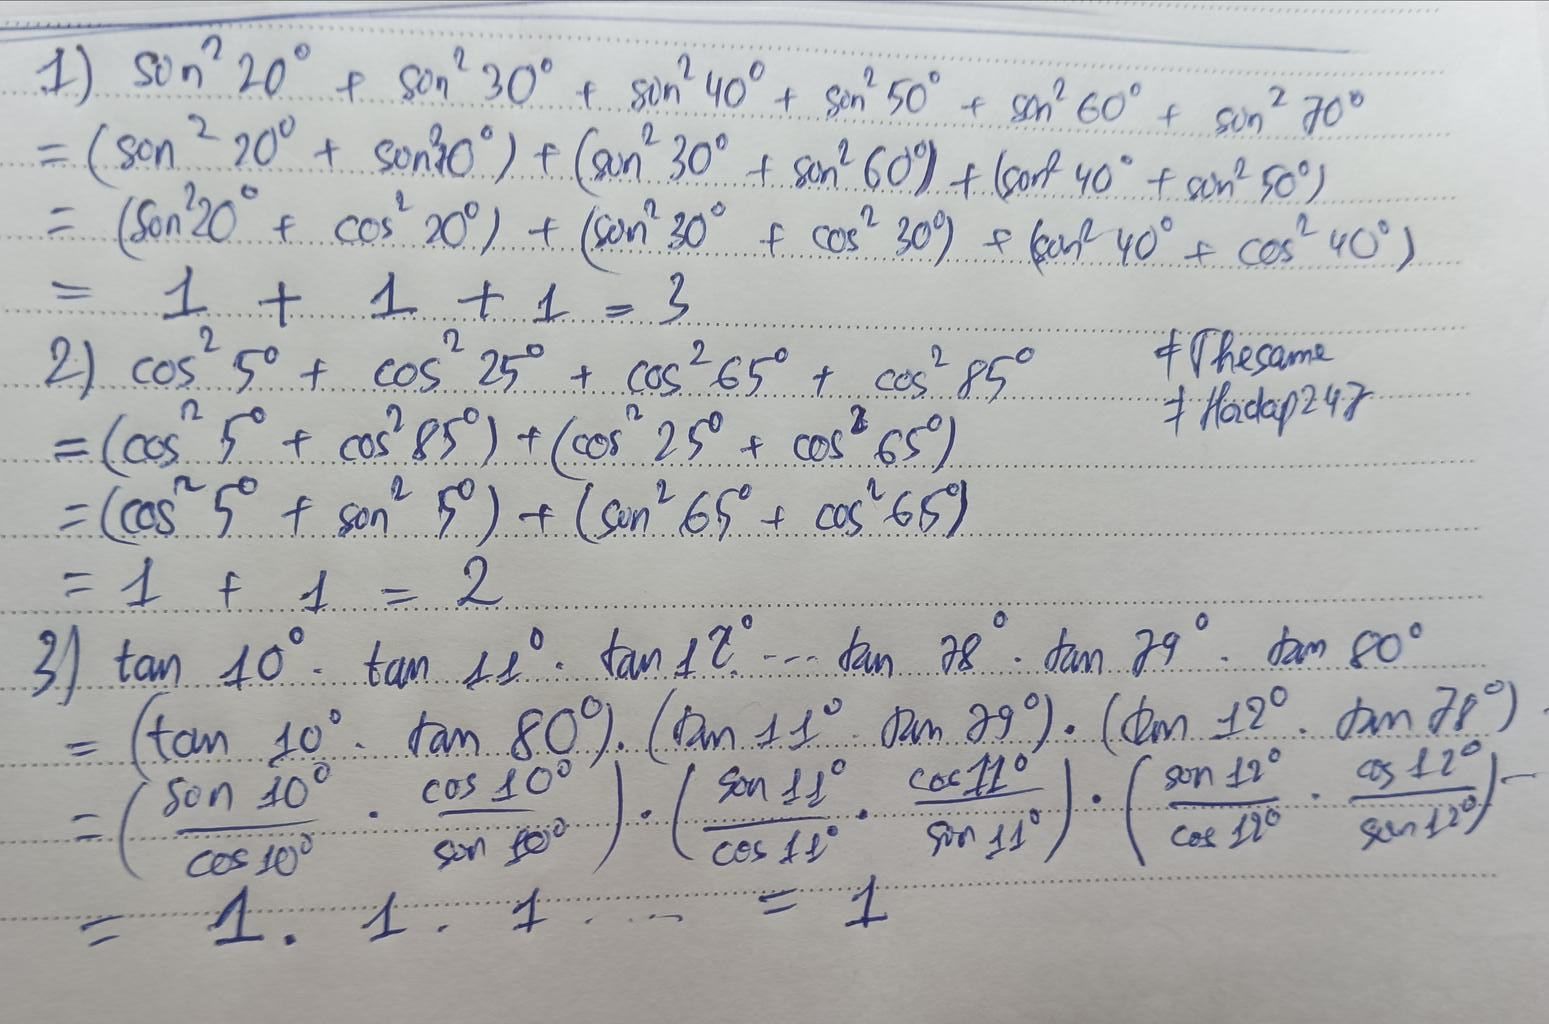 1) sin² 20° + sin² 30° + sin² 40° + sin² 50° + sin² 60° + sin² 70°
= (sin² 20° + sin² 70°) + (sin² 30° + sin² 60°) + (sin² 40° + sin² 50°)
= (sin² 20° + cos² 20°) + (sin² 30° + cos² 30°) + (sin² 40° + cos² 40°)
= 1 + 1 + 1 = 3
2) cos² 5° + cos² 25° + cos² 65° + cos² 85°
# Thesame
# Hoidap247
= (cos² 5° + cos² 85°) + (cos² 25° + cos² 65°)
= (cos² 5° + sin² 5°) + (sin² 65° + cos² 65°)
= 1 + 1 = 2
3) tan 10° . tan 11° . tan 12° .... tan 78° . tan 79° . tan 80°
= (tan 10° . tan 80°) . (tan 11° . tan 79°) . (tan 12° . tan 78°) .
= (sin 10° / cos 10° . cos 10° / sin 10°) . (sin 11° / cos 11° . cos 11° / sin 11°) . (sin 12° / cos 12° . cos 12° / sin 12°) ...
= 1 . 1 . 1 .... = 1